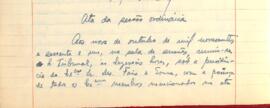 Ata da sessão ordinária
Aos nove de outubro de mil novecentos
e sessenta e um, na sala de sessões, reuniu-se
o Tribunal, às dezessete horas, sob a presidên-
cia do Exmo. Sr. des. Faria e Sousa, com a presença
de todos os Exmos. membros mencionados na ata